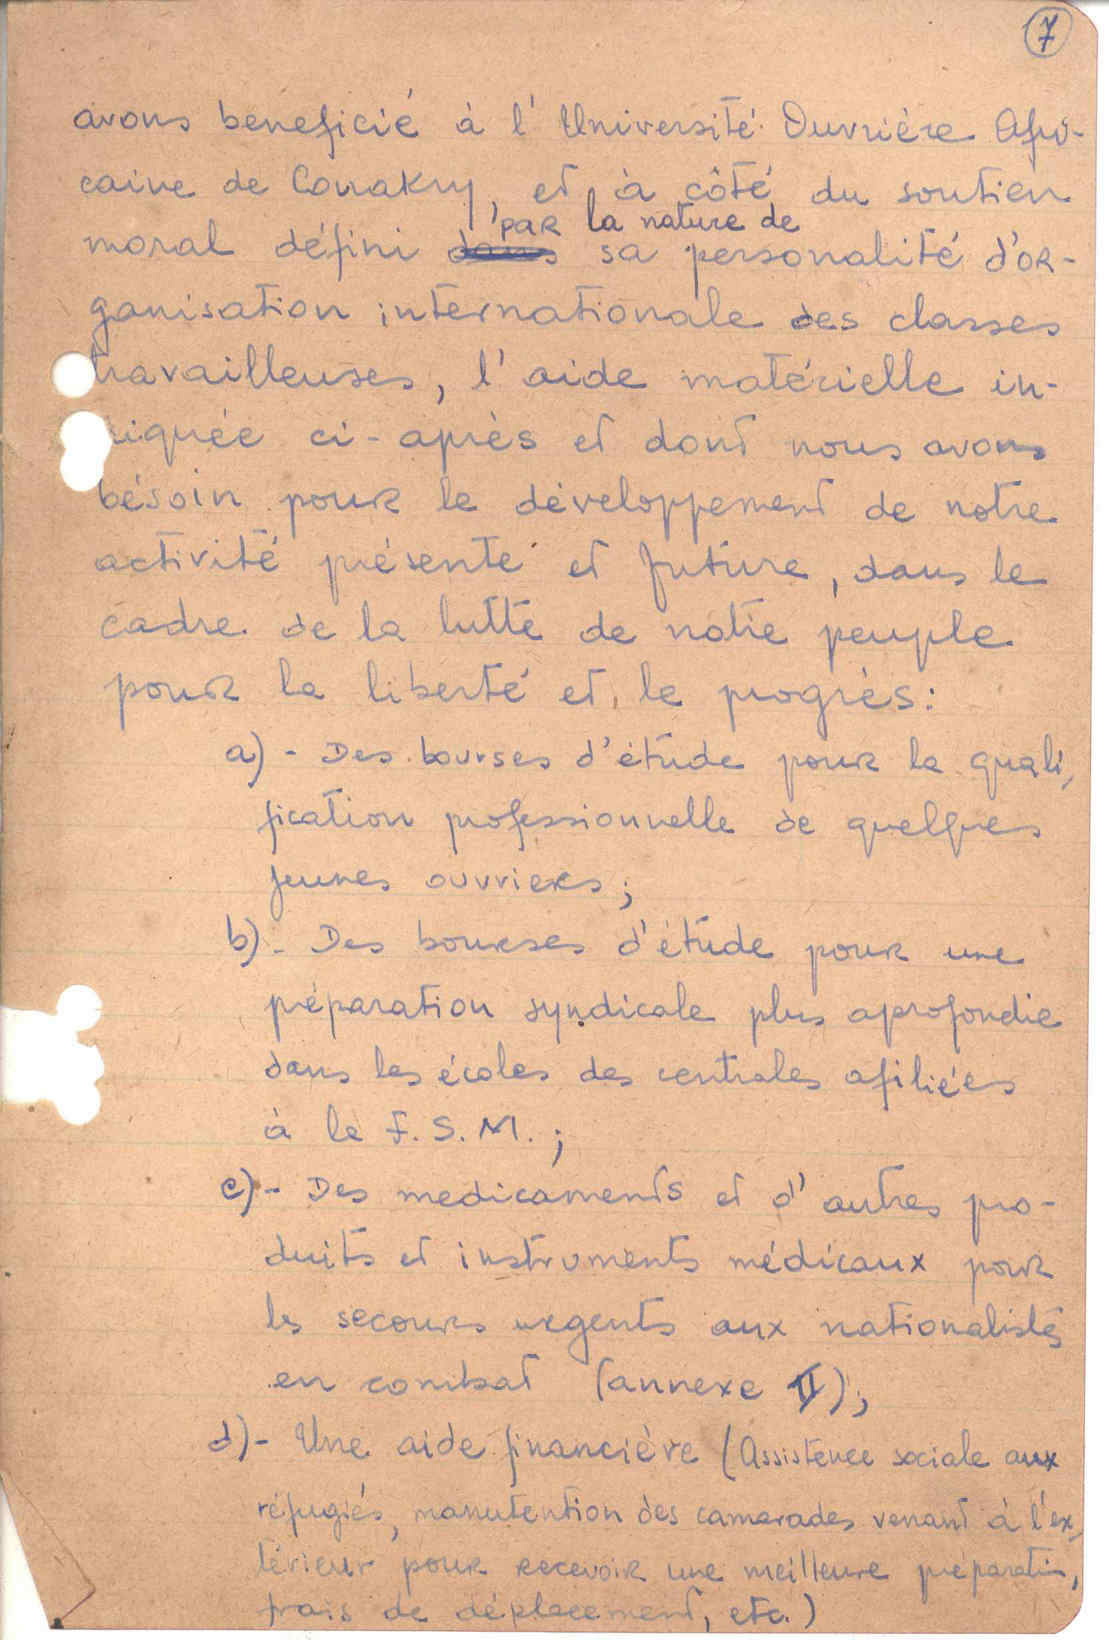 7
avons beneficié à l'Université Ouvrière Afri-
caine de Conakry, et à côté du soutien
par la nature de
moral défini dans sa personalité d'or-
ganisation internationale des classes
travailleuses, l'aide matérielle in-
diquée ci-après et dont nous avons
bésoin pour le développement de notre
activité présente et future, dans le
cadre de la lutte de notre peuple
pour la liberté et le progrès:
a) - Des bourses d'étude pour la quali-
fication professionnelle de quelques
jeunes ouvriers;
b) - Des bourses d'étude pour une
préparation syndicale plus aprofondie
dans les écoles des centrales afiliées
à la F.S.M.;
c) - Des medicaments et d'autres pro-
duits et instruments médicaux pour
les secours urgents aux nationalistes
en combat (annexe II);
d) - Une aide financière (Assistence sociale aux
réfugiés, manutention des camarades venant à l'ex-
térieur pour recevoir une meilleure préparation,
frais de déplacement, etc.)